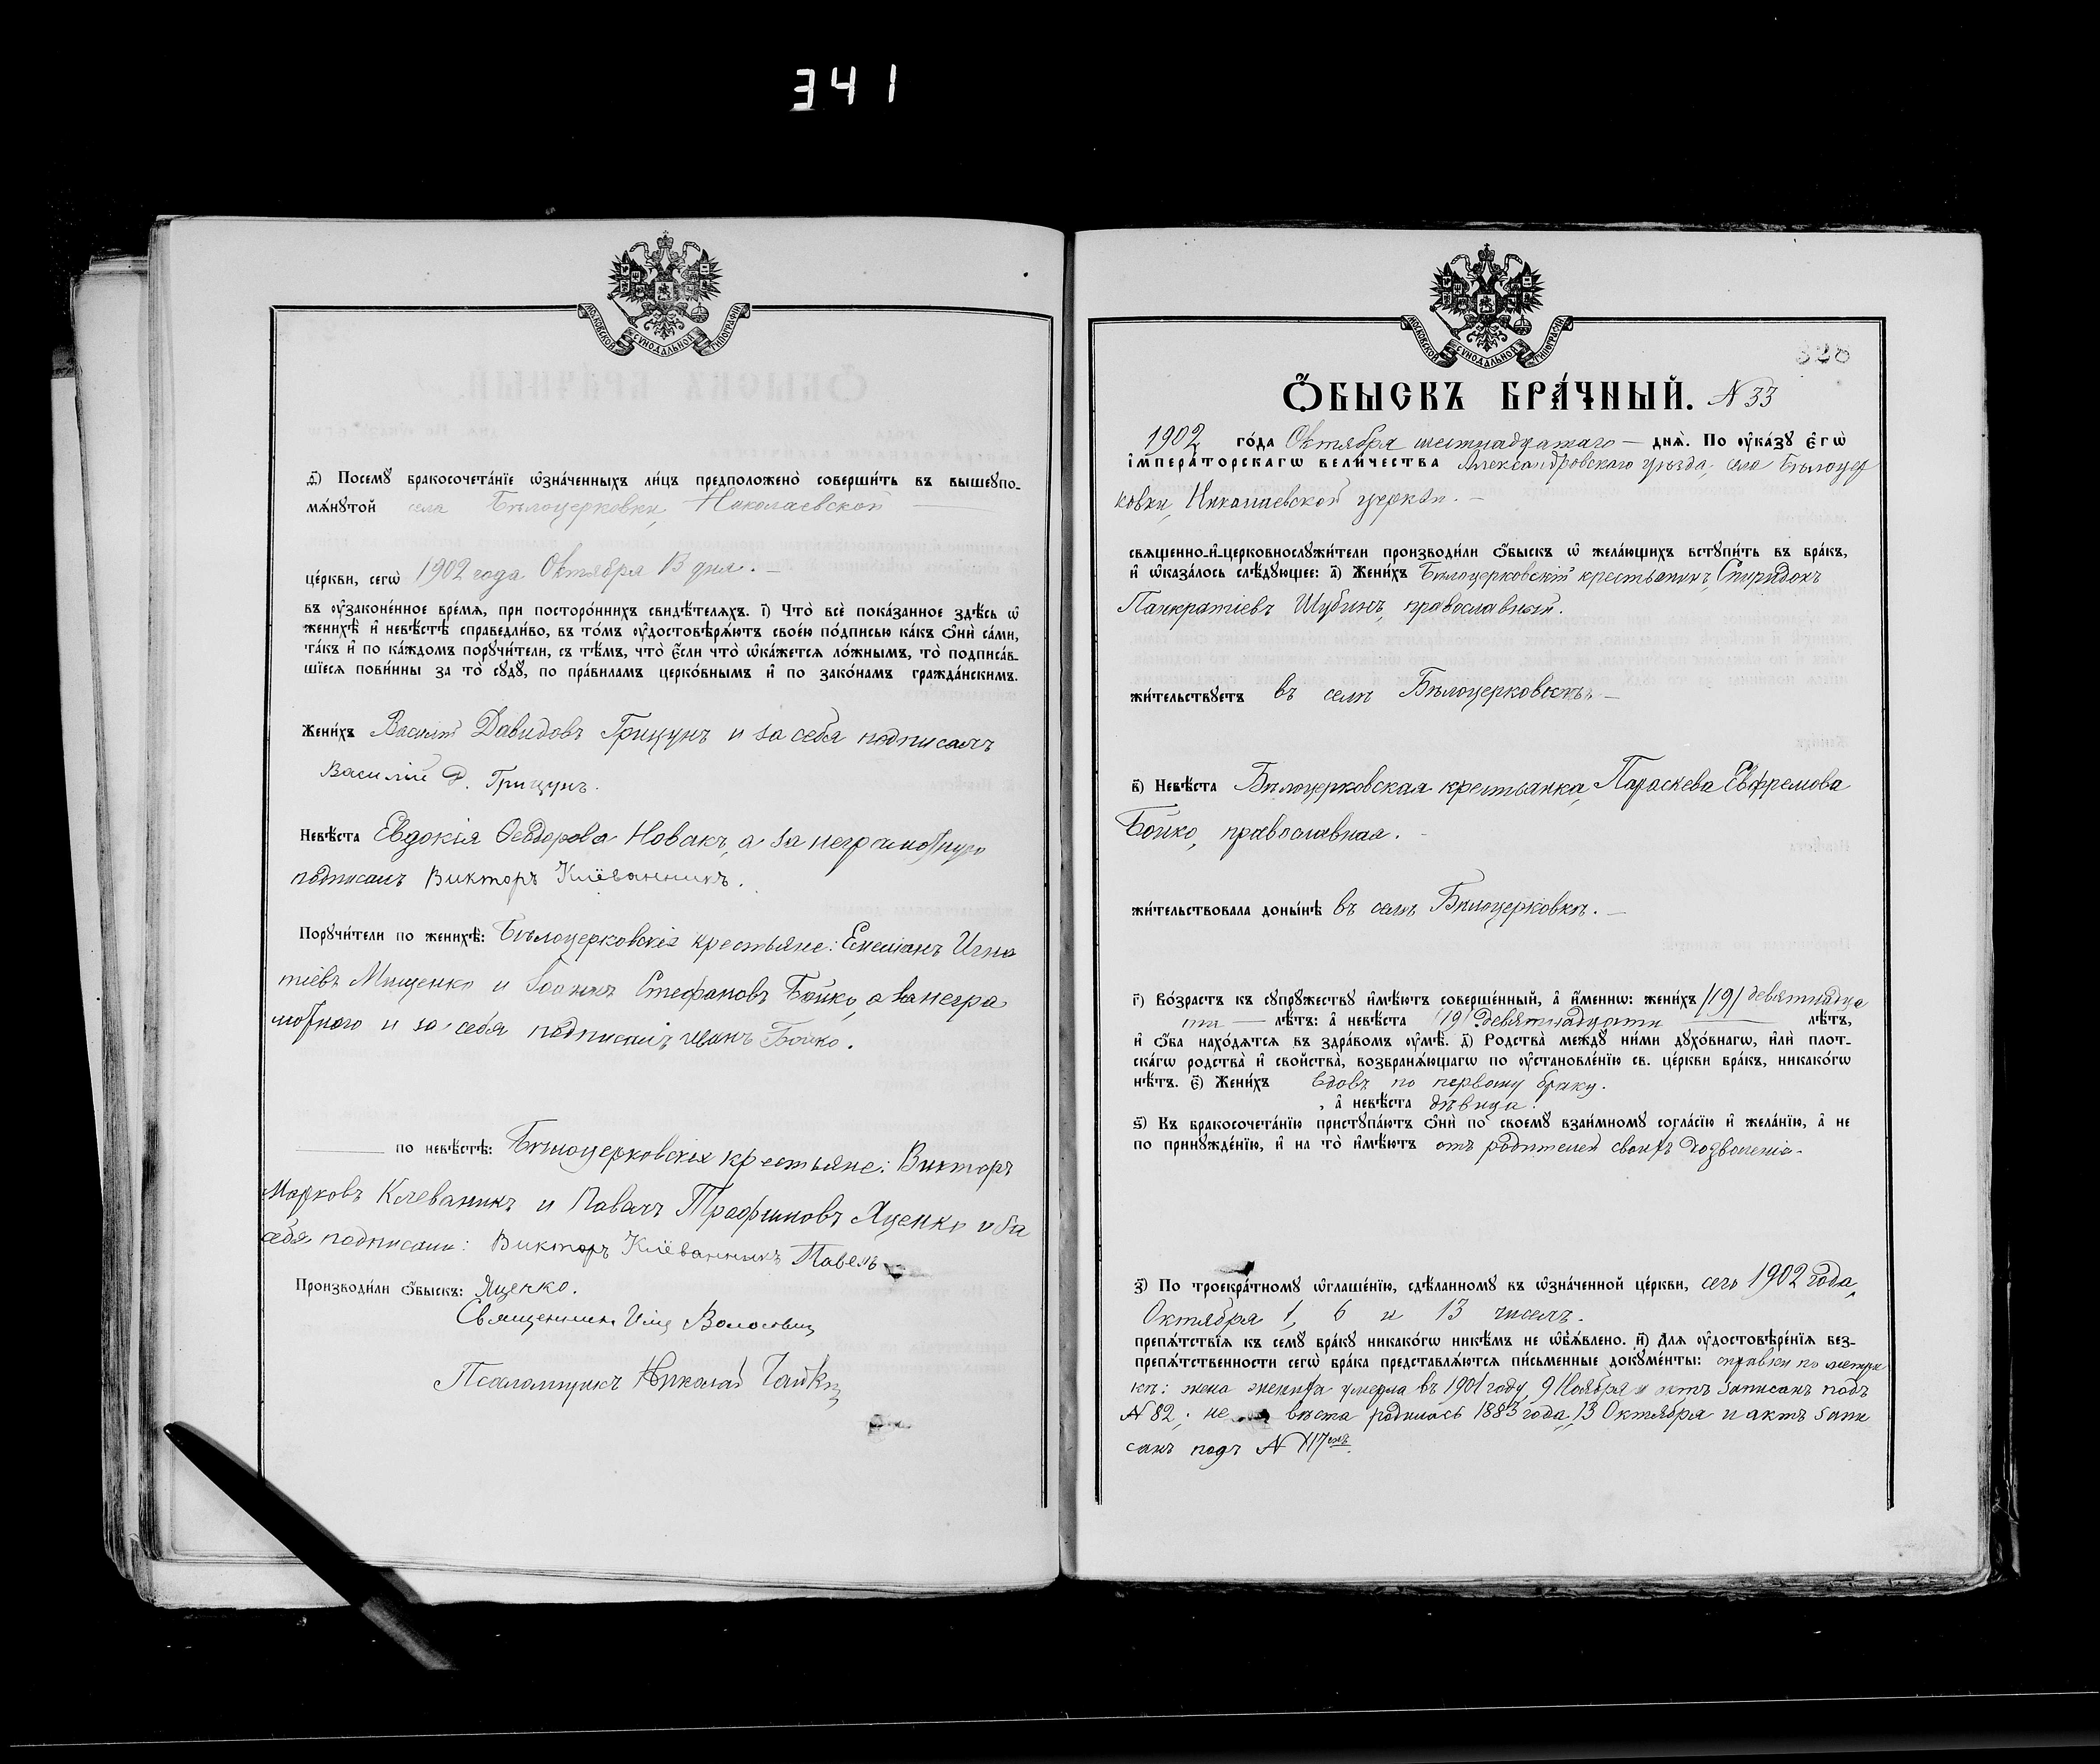 341
МОСКОВСКОЙ СУНОДАЛЬНОЙ ТИПОГРАФІИ
ѳ) Посемꙋ бракосочета́нїе ѡ҆зна́ченныхъ ли́цъ предположено̀ соверши́ть въ вышеꙋпо-
мѧ́нꙋтой села Бѣлоцерковки, Николаевской
це́ркви, сегѡ̀ 1902 года Октября 13 дня. –
въ ᲂу҆зако́ненное вре́мѧ, при посторо́ннихъ свидѣ́телѧхъ. і҃) Что̀ всѐ пока́занное здѣ́сь ѡ҆
женихѣ̀ и҆ невѣ́стѣ справедли́во, въ то́мъ ᲂу҆достовѣрѧ́ютъ свое́ю по́дписью ка́къ ѻ҆нѝ са́ми,
та́къ и҆ по ка́ждомъ порꙋчи́тели, съ тѣ́мъ, что̀ є҆́сли что̀ ѡ҆ка́жетсѧ ло́жнымъ, то̀ подписа́в-
шїесѧ пови́нны за то̀ сꙋдꙋ̀, по пра́виламъ церко́внымъ и҆ по зако́намъ гражда́нскимъ.
Жени́хъ Василій Давидовъ Грицунъ и за себя подписалъ
Василій Д. Грицунъ.
Невѣ́ста Евдокія Ѳеодорова Новакъ, а за неграмотную
подписалъ Викторъ Клёванникъ.
Порꙋчи́тели по женихѣ̀: Бѣлоцерковскіе крестьяне: Емеліанъ Игна
тіевъ Мищенко и Іоаннъ Стефановъ Бойко, а за негра
мотнаго и за себя подписалъ Иванъ Бойко.
по невѣ́стѣ: Бѣлоцерковскіе крестьяне: Викторъ
Марковъ Клеваникъ и Павелъ Трофимовъ Яценко и за
себя подписали: Викторъ Клёванникъ Павелъ
Производи́ли ѻ҆́быскъ: Яценко.
Священникъ Илія
Псаломщикъ Николай
МОСКОВСКОЙ СУНОДАЛЬНОЙ ТИПОГРАФІИ
328
Ѻ҆́БЫСКЪ БРА́ЧНЫЙ. N 33
1902 го́да Октября шестнадцатаго — днѧ̀. По ᲂу҆ка́зꙋ є҆гѡ̀
і҆мпера́торскагѡ вели́чества Александровскаго уѣзда, села Бѣлоцер
ковки, Николаевской церкви. –
свѧще́нно-и҆-церковнослꙋжи́тели производи́ли ѻ҆́быскъ ѡ҆ жела́ющихъ встꙋпи́ть въ бра́къ,
и҆ ѡ҆каза́лось слѣ́дꙋющее: а҃) Жени́хъ Бѣлоцерковскій крестьянинъ, Спиридонъ
Панкратіевъ Шубинъ, православный.
жи́тельствꙋетъ въ селѣ Бѣлоцерковкѣ. –
в҃) Невѣ́ста Бѣлоцерковская крестьянка, Параскева Евфремова
Бойко, православная. –
жи́тельствовала доны́нѣ въ селѣ Бѣлоцерковкѣ. –
г҃) Во́зрастъ къ сꙋпрꙋ́жествꙋ и҆мѣ́ютъ соверше́нный, а҆ и҆́меннѡ: жени́хъ /19/ девятнадца
ти — лѣ́тъ: а҆ невѣ́ста /19/ девятнадцати — лѣ́тъ,
и҆ ѻ҆́ба нахо́дѧтсѧ въ здра́вомъ ᲂу҆мѣ̀. д҃) Родства̀ междꙋ̀ ни́ми дꙋхо́внагѡ, и҆лѝ плот-
ска́гѡ родства̀ и҆ сво́йства, возбранѧ́ющагѡ по ᲂу҆становле́нїю св. це́ркви бра́къ, никако́гѡ
нѣ́тъ. є҃) Жени́хъ вдовъ по первому браку.
, а҆ невѣ́ста дѣвица.
ѕ҃) Къ бракосочета́нїю пристꙋпа́ютъ ѻ҆нѝ по своемꙋ̀ взаи́мномꙋ согла́сїю и҆ жела́нїю, а҆ не
по принꙋжде́нїю, и҆ на то̀ и҆мѣ́ютъ отъ родителей своихъ дозволеніе.
з҃) По троекра́тномꙋ ѡ҆глаше́нїю, сдѣ́ланномꙋ въ ѡ҆зна́ченной це́ркви, сего 1902 года,
Октября 1, 6 и 13 чиселъ.
препѧ́тствїѧ къ семꙋ̀ бра́кꙋ никако́гѡ никѣ́мъ не ѡ҆б̾ѧ́влено. и҃) Длѧ ᲂу҆достовѣре́нїѧ без-
препѧ́тственности сегѡ̀ бра́ка представлѧ́ютсѧ пи́сьменные докꙋме́нты: справки по метри
кѣ: жена жениха умерла въ 1901 году, 9 Ноября и актъ записанъ подъ
N 82; не вѣста родилась 1883 года, 13 Октября и актъ запи
санъ подъ N 117